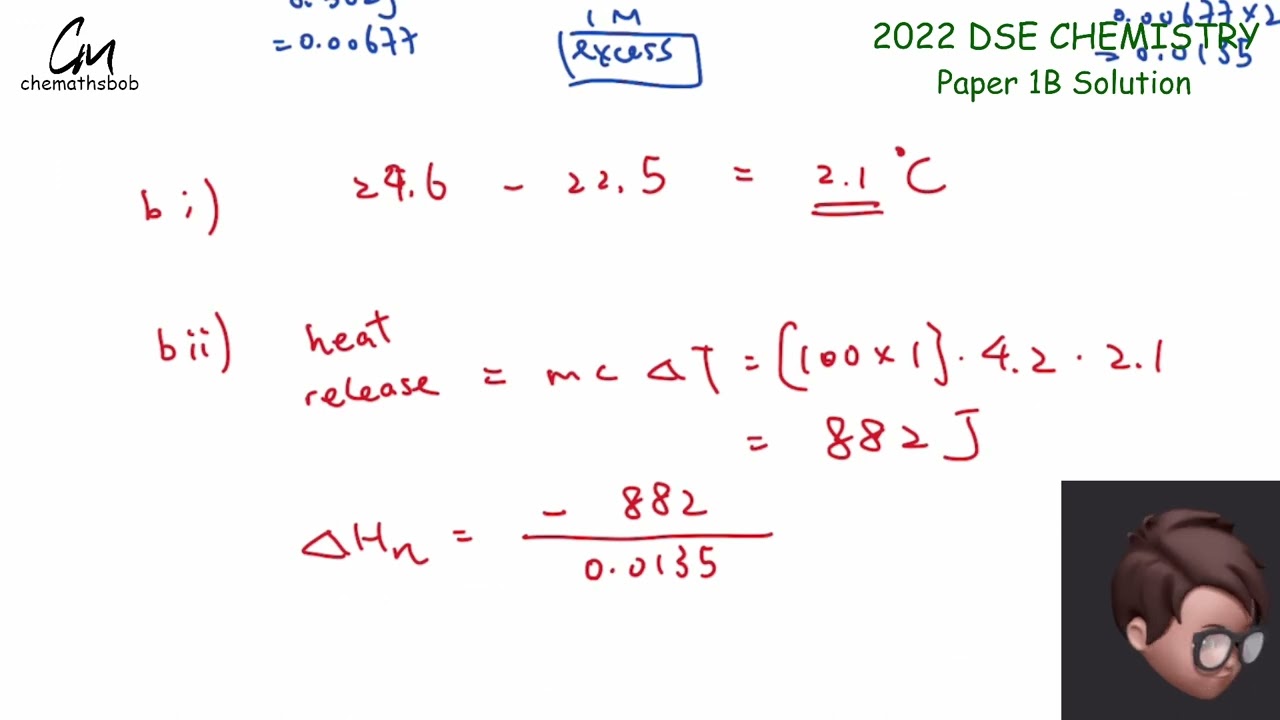 = 0.00677
1 M
excess
0.00677 × 2
= 0.0135
chemathsbob
2022 DSE CHEMISTRY
Paper 1B Solution
b i) 24.6 - 22.5 = 2.1 °C
b ii) heat release = mc ΔT = [100 × 1] · 4.2 · 2.1
= 882 J
ΔHn = - 882
0.0135